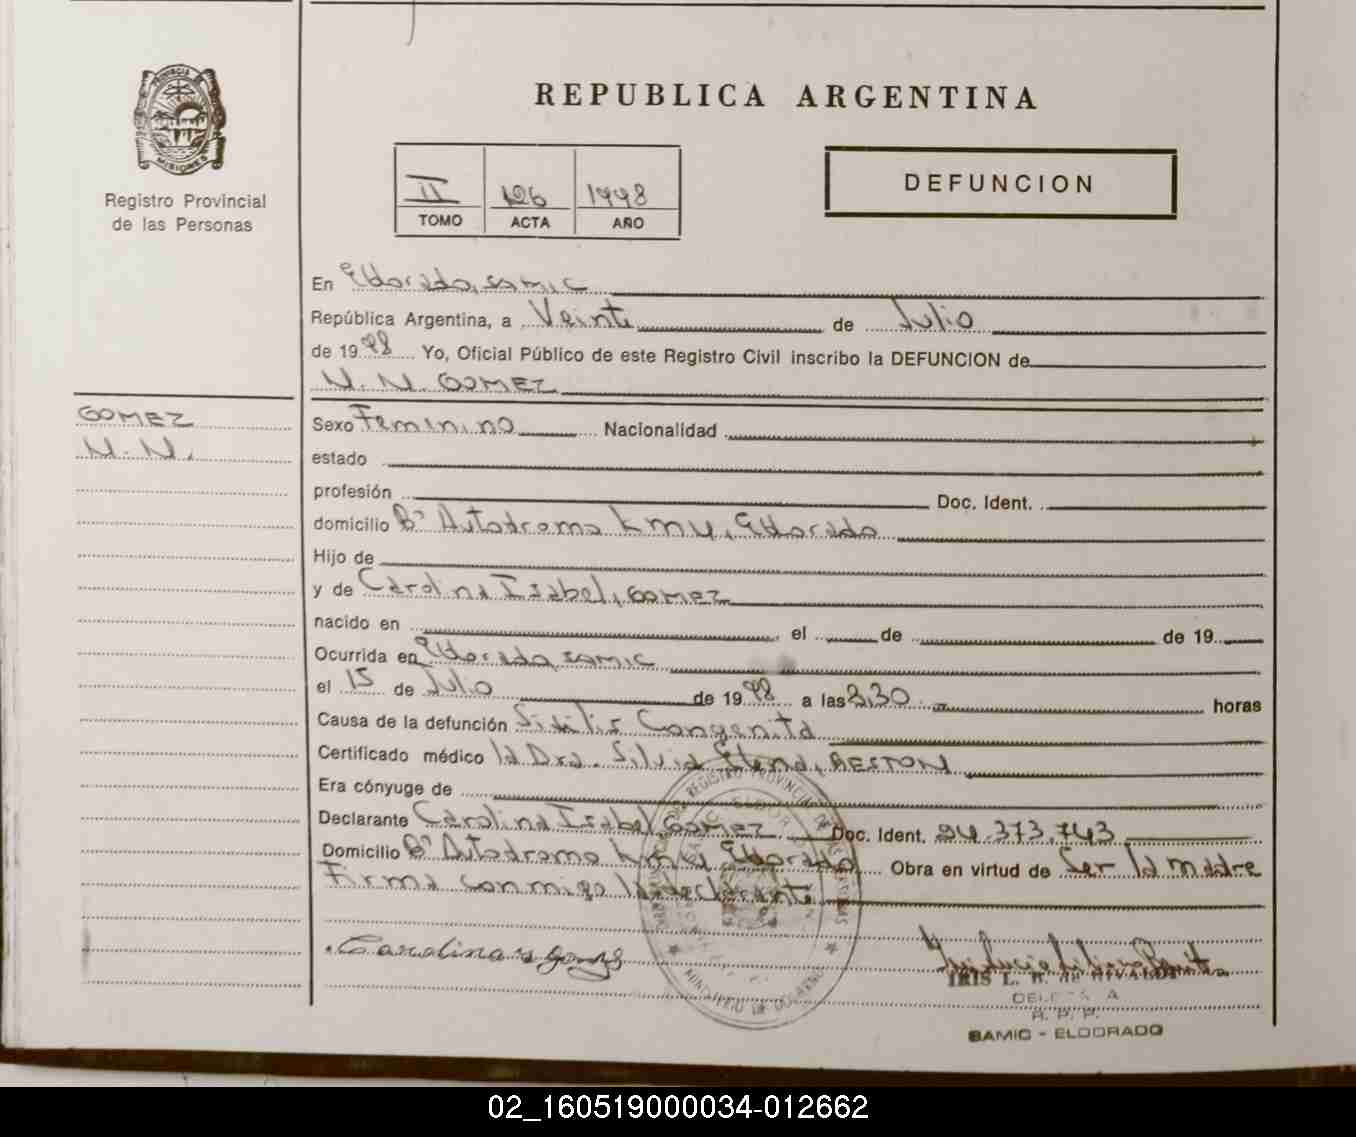 PROVINCIA DE
MISIONES
Registro Provincial
de las Personas
REPUBLICA ARGENTINA
II 126 1998
TOMO ACTA AÑO
DEFUNCION
En Eldorado, SAMIC
República Argentina, a Veinte de Julio
de 1998 Yo, Oficial Público de este Registro Civil inscribo la DEFUNCION de
N. N. GOMEZ
GOMEZ
N. N.
Sexo Femenino Nacionalidad
estado
profesión Doc. Ident.
domicilio Bº Autodromo km 4, Eldorado
Hijo de
y de Carolina Isabel, GOMEZ
nacido en , el de de 19
Ocurrida en Eldorado, SAMIC
el 15 de Julio de 1998 a las 3,30 horas
Causa de la defunción Sifilis Congenita
Certificado médico la Dra. Silvia Elena, RESTON
Era cónyuge de
Declarante Carolina Isabel, GOMEZ Doc. Ident. 24.373.743
Domicilio Bº Autodromo km 4, Eldorado Obra en virtud de Ser la madre
Firma conmigo la declarante
REGISTRO PROVINCIAL DE LAS PERSONAS
MINISTERIO DE GOBIERNO
Carolina Y Gomez
IRIS L. R. de
DELEGADA
R. P. P.
SAMIC - ELDORADO
02_160519000034-012662